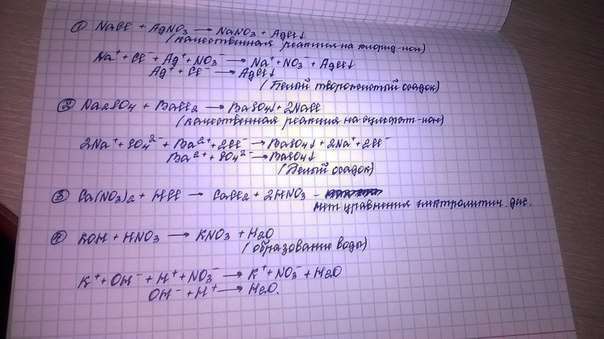 ① NaCl + AgNO₃ → NaNO₃ + AgCl↓
(качественная реакция на хлорид-ион)
Na⁺ + Cl⁻ + Ag⁺ + NO₃⁻ → Na⁺ + NO₃⁻ + AgCl↓
Ag⁺ + Cl⁻ → AgCl↓
(белый творожистый осадок)
② Na₂SO₄ + BaCl₂ → BaSO₄↓ + 2NaCl
(качественная реакция на сульфат-ион)
2Na⁺ + SO₄²⁻ + Ba²⁺ + 2Cl⁻ → BaSO₄↓ + 2Na⁺ + 2Cl⁻
Ba²⁺ + SO₄²⁻ → BaSO₄↓
(белый осадок)
③ Ca(NO₃)₂ + HCl → CaCl₂ + 2HNO₃ -
нет уравнения электролитич. дис.
④ KOH + HNO₃ → KNO₃ + H₂O
(образование воды)
K⁺ + OH⁻ + H⁺ + NO₃⁻ → K⁺ + NO₃⁻ + H₂O
OH⁻ + H⁺ → H₂O.